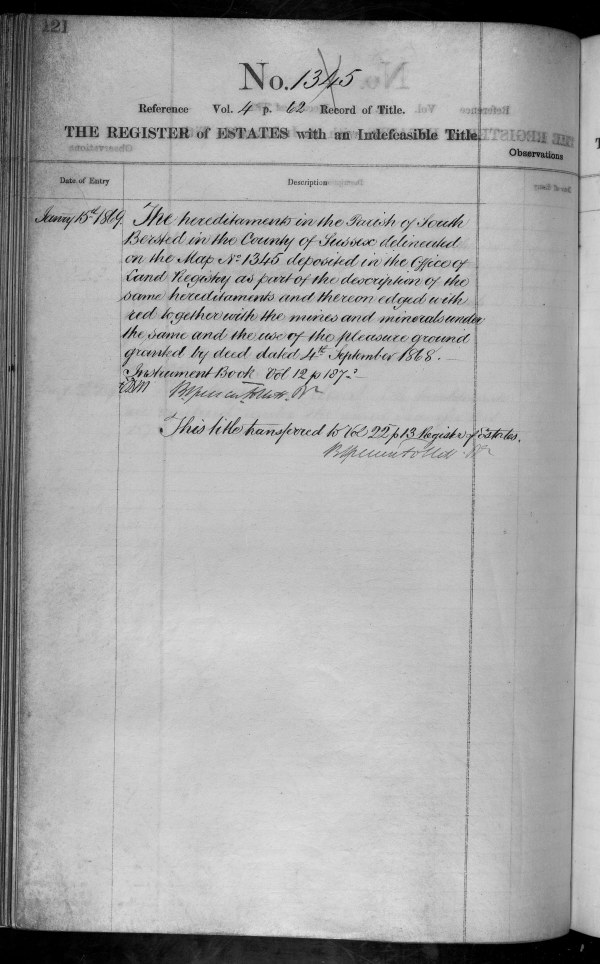 121
No. 1345
Reference Vol. 4 p. 62 Record of Title.
THE REGISTER of ESTATES with an Indefeasible Title.
Observations
Date of Entry
Description
Janry 15th 1869.
The hereditaments in the Parish of South
Bersted in the County of Sussex delineated
on the Map No 1345 deposited in the Office of
Land Registry as part of the description of the
same hereditaments and thereon edged with
red together with the mines and minerals under
the same and the use of the pleasure ground
granted by deed dated 4th September 1868. —
Instrument Book Vol 12 p 187. —
This title transferred to Vol 22 p 13 Register of Estates.